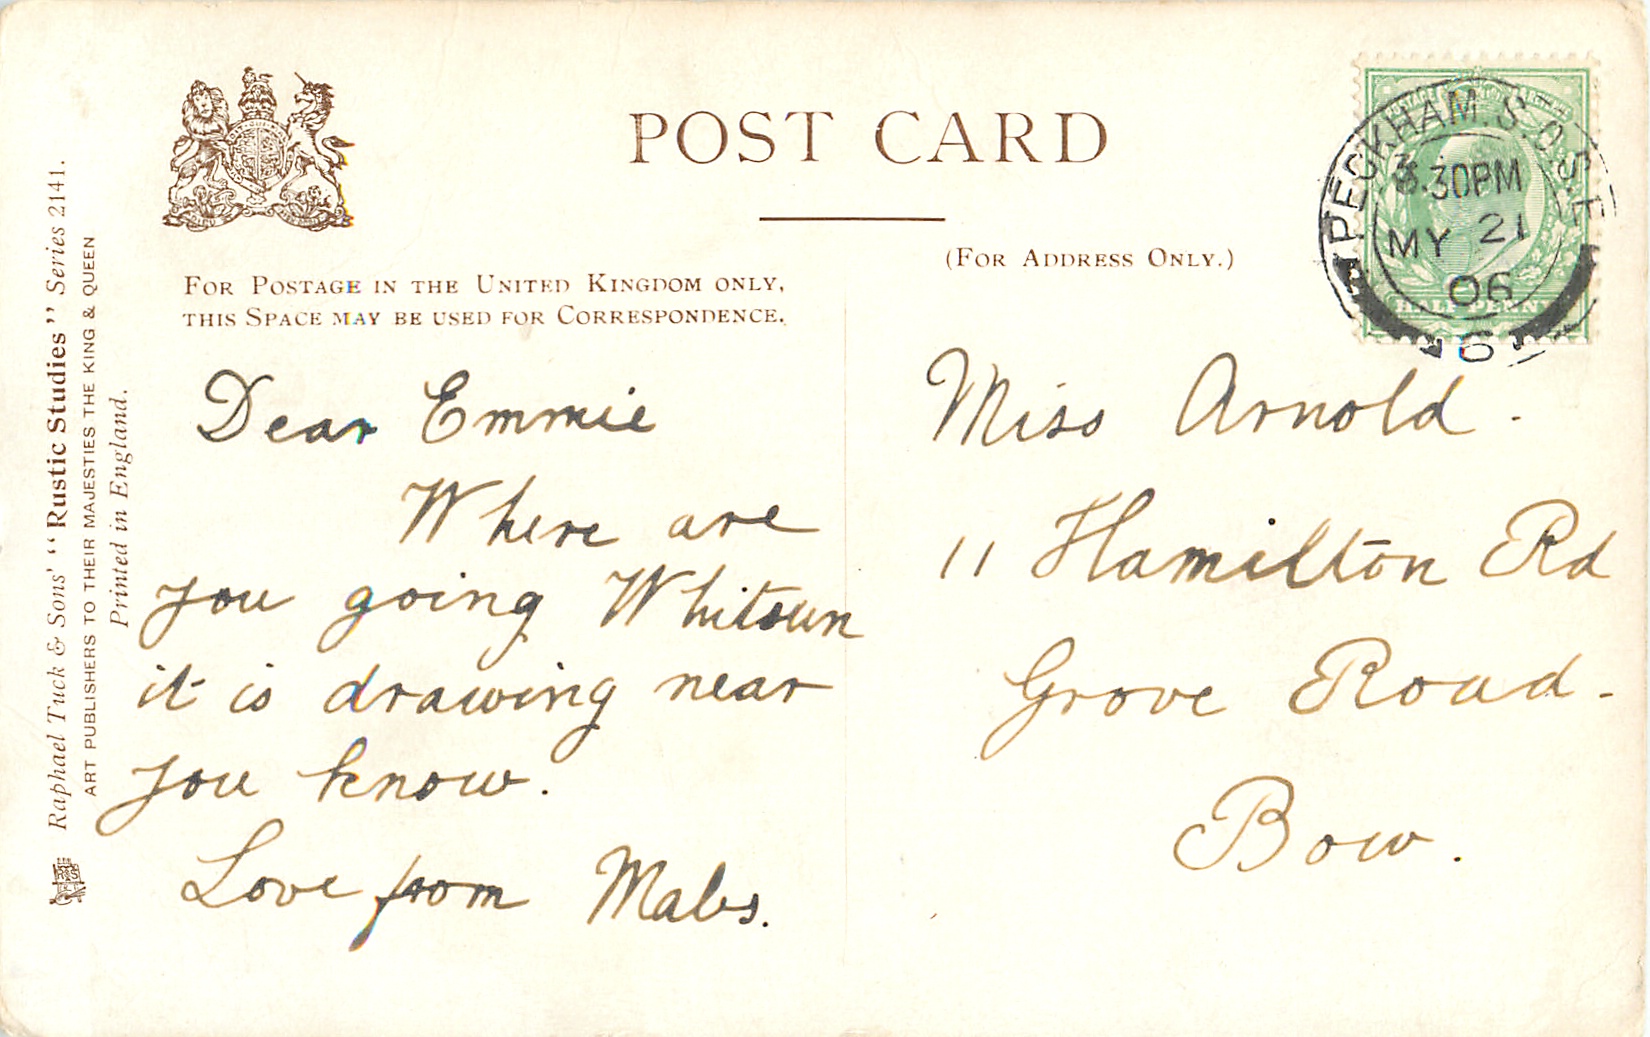 POST CARD
FOR POSTAGE IN THE UNITED KINGDOM ONLY,
THIS SPACE MAY BE USED FOR CORRESPONDENCE.
(FOR ADDRESS ONLY.)
PECKHAM.S.O.S.E
3.30PM
MY 21
06
6
HALFPENNY
Dear Emmie
Where are
you going Whitsun
it is drawing near
you know.
Love from Mabs.
Miss Arnold.
11 Hamilton Rd
Grove Road.
Bow.
Raphael Tuck & Sons' "Rustic Studies" Series 2141.
ART PUBLISHERS TO THEIR MAJESTIES THE KING & QUEEN
Printed in England.